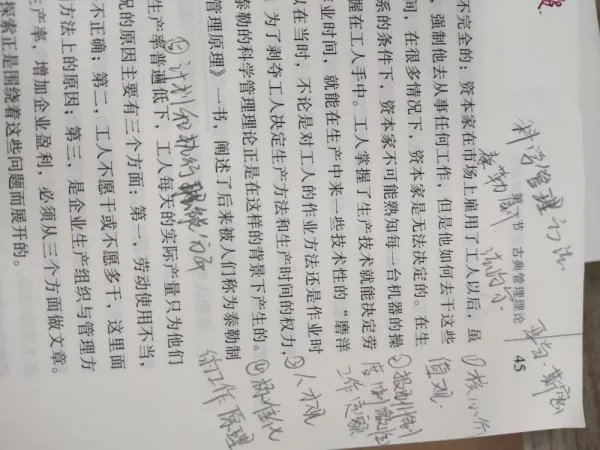 科学管理
古典管理理论 45
不完全的；资本家在市场上雇用了工人以后，虽
，强制他去从事任何工作，但是他如何去干这些
间，在很多情况下，资本家是无法决定的。在生
系的条件下，资本家不可能熟知每一台机器的操
握在工人手中。工人掌握了生产技术就能决定劳
作业时间，就能在生产中来一些技术性的“磨洋
以在当时，不论是对工人的作业方法还是作业时
为了剥夺工人决定生产方法和生产时间的权力，
泰勒的科学管理理论正是在这样的背景下产生的。
管理原理》一书，阐述了后来被人们称为泰勒制
生产率普遍低下，工人每天的实际产量只为他们
况的原因主要有三个方面：第一，劳动使用不当，
不正确；第二，工人不愿干或不愿多干，这里面
方法上的原因；第三，是企业生产组织与管理方
生产率，增加企业盈利，必须从三个方面做文章。
探索正是围绕着这些问题而展开的。
①核心价
值观
工作定额
人才观
④标准化
工作原理
计划和执行